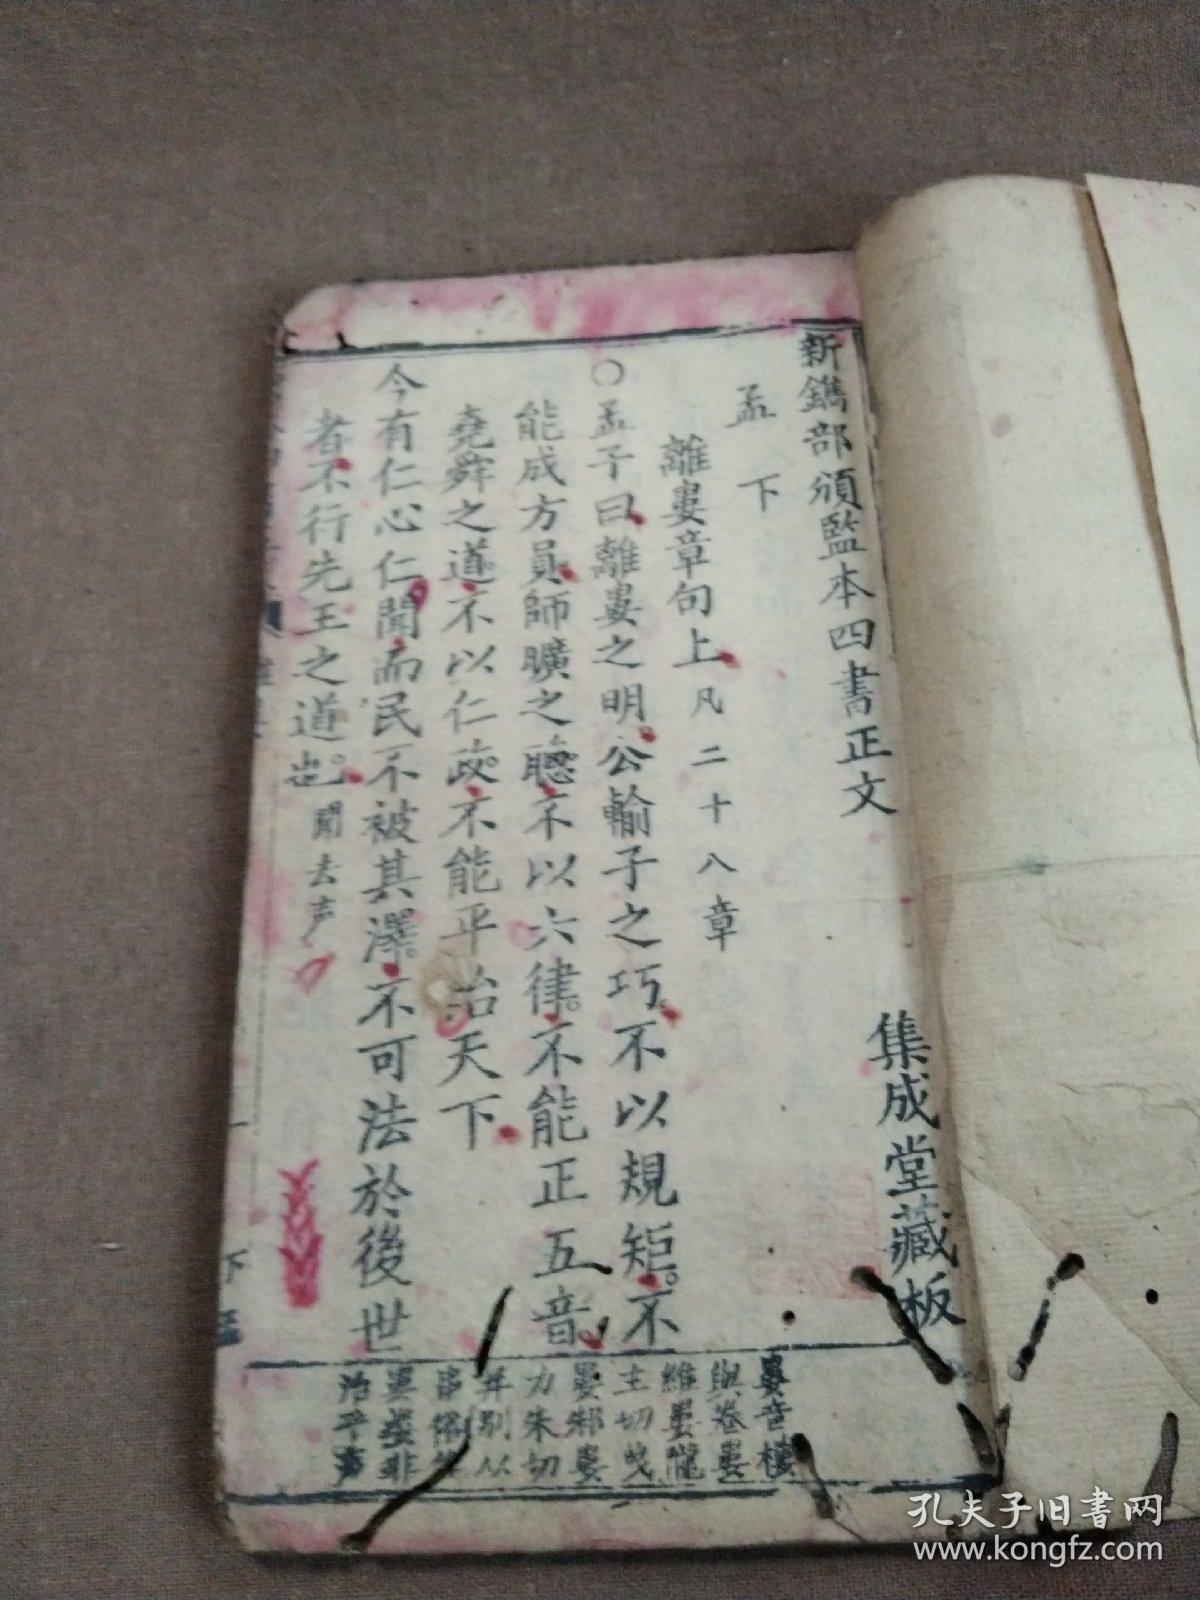 新鐫部頒監本四書正文 集成堂藏板
孟下
離婁章句上 凡二十八章
○孟子曰離婁之明。公輸子之巧。不以規矩。不
能成方員。師曠之聰。不以六律。不能正五音。
堯舜之道。不以仁政。不能平治天下
今有仁心仁聞而民不被其澤。不可法於後世
者不行先王之道也。聞去声
婁音樓
與卷婁
維婁隴
主切曵
婁邾婁
力朱切
並別以
治平声
孔夫子旧書网
www.kongfz.com